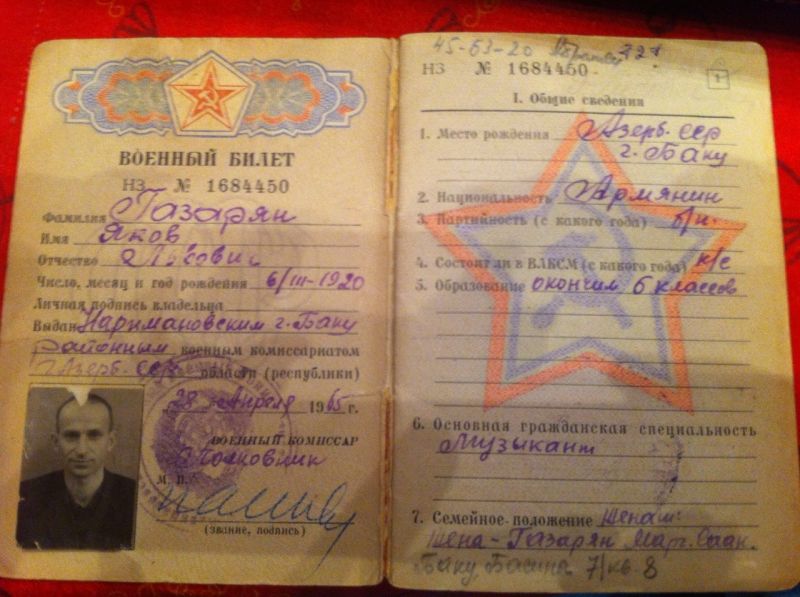 ВОЕННЫЙ БИЛЕТ
НЗ № 1684450
Фамилия Газарян
Имя Яков
Отчество
Число, месяц и год рождения 6/III-1920
Личная подпись владельца
Выдан Наримановским г. Баку
районным военным комиссариатом
Азерб. ССР области (республики)
28 Апреля 1965 г.
ВОЕННЫЙ КОМИССАР
Полковник
М. П.
(звание, подпись)
45-63-20
НЗ № 1684450
1
I. Общие сведения
1. Место рождения Азерб. ССР
г. Баку
2. Национальность Армянин
3. Партийность (с какого года) б/п.
4. Состоял ли в ВЛКСМ (с какого года)
5. Образование окончил 6 классов
6. Основная гражданская специальность
Музыкант
7. Семейное положение Женат:
жена - Газарян Марг.
Баку Басина 7/кв. 8